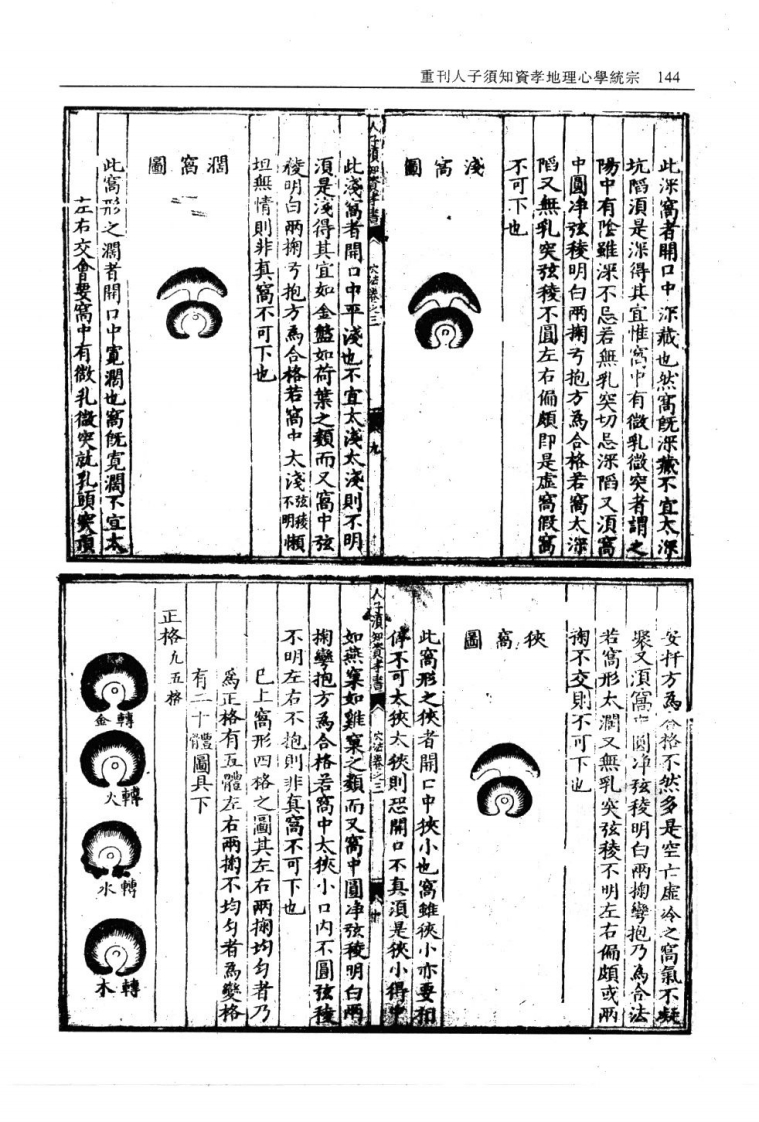 重刊人子須知資孝地理心學統宗　144
此深窩者開口中深藏也然窩旣深藏不宜太深
坑陷須是深得其宜惟窩中有微乳微突者謂之
陽中有陰雖深不忌若無乳突切忌深陷又須窩
中圓净弦稜明白兩掬弓抱方爲合格若窩太深
陷又無乳突弦稜不圓左右偏頗即是虛窩假窩
不可下也
淺窩圖
人子須知資孝書　穴法卷之二　九
此淺窩者開口中平淺也不宜太淺太淺則不明
須是淺得其宜如金盤如荷葉之類而又窩中弦
稜明白兩掬弓抱方爲合格若窩中太淺弦稜不明懶
坦無情則非真窩不可下也
濶窩圖
此窩形之濶者開口中寛濶也窩旣寛濶不宜太
左右交會要窩中有微乳微突就乳頭突頂
安扦方爲合格不然多是空亡虛冷之窩氣不凝
聚又須窩中圓净弦稜明白兩掬彎抱乃爲合法
若窩形太濶又無乳突弦稜不明左右偏頗或兩
掬不交則不可下也
狹窩圖
此窩形之狹者開口中狹小也窩雖狹小亦要相
停不可太狹太狹則恐開口不真須是狹小得中
人子須知資孝書　穴法卷之二　廿
如燕窠如雞窠之類而又窩中圓净弦稜明白兩
掬彎抱方爲合格若窩中太狹小口内不圓弦稜
不明左右不抱則非真窩不可下也
已上窩形四格之圖其左右兩掬均勻者乃
爲正格有互體左右兩掬不均勻者爲變格
有二十體圖具下
正格九五格
轉金
轉火
轉水
轉木